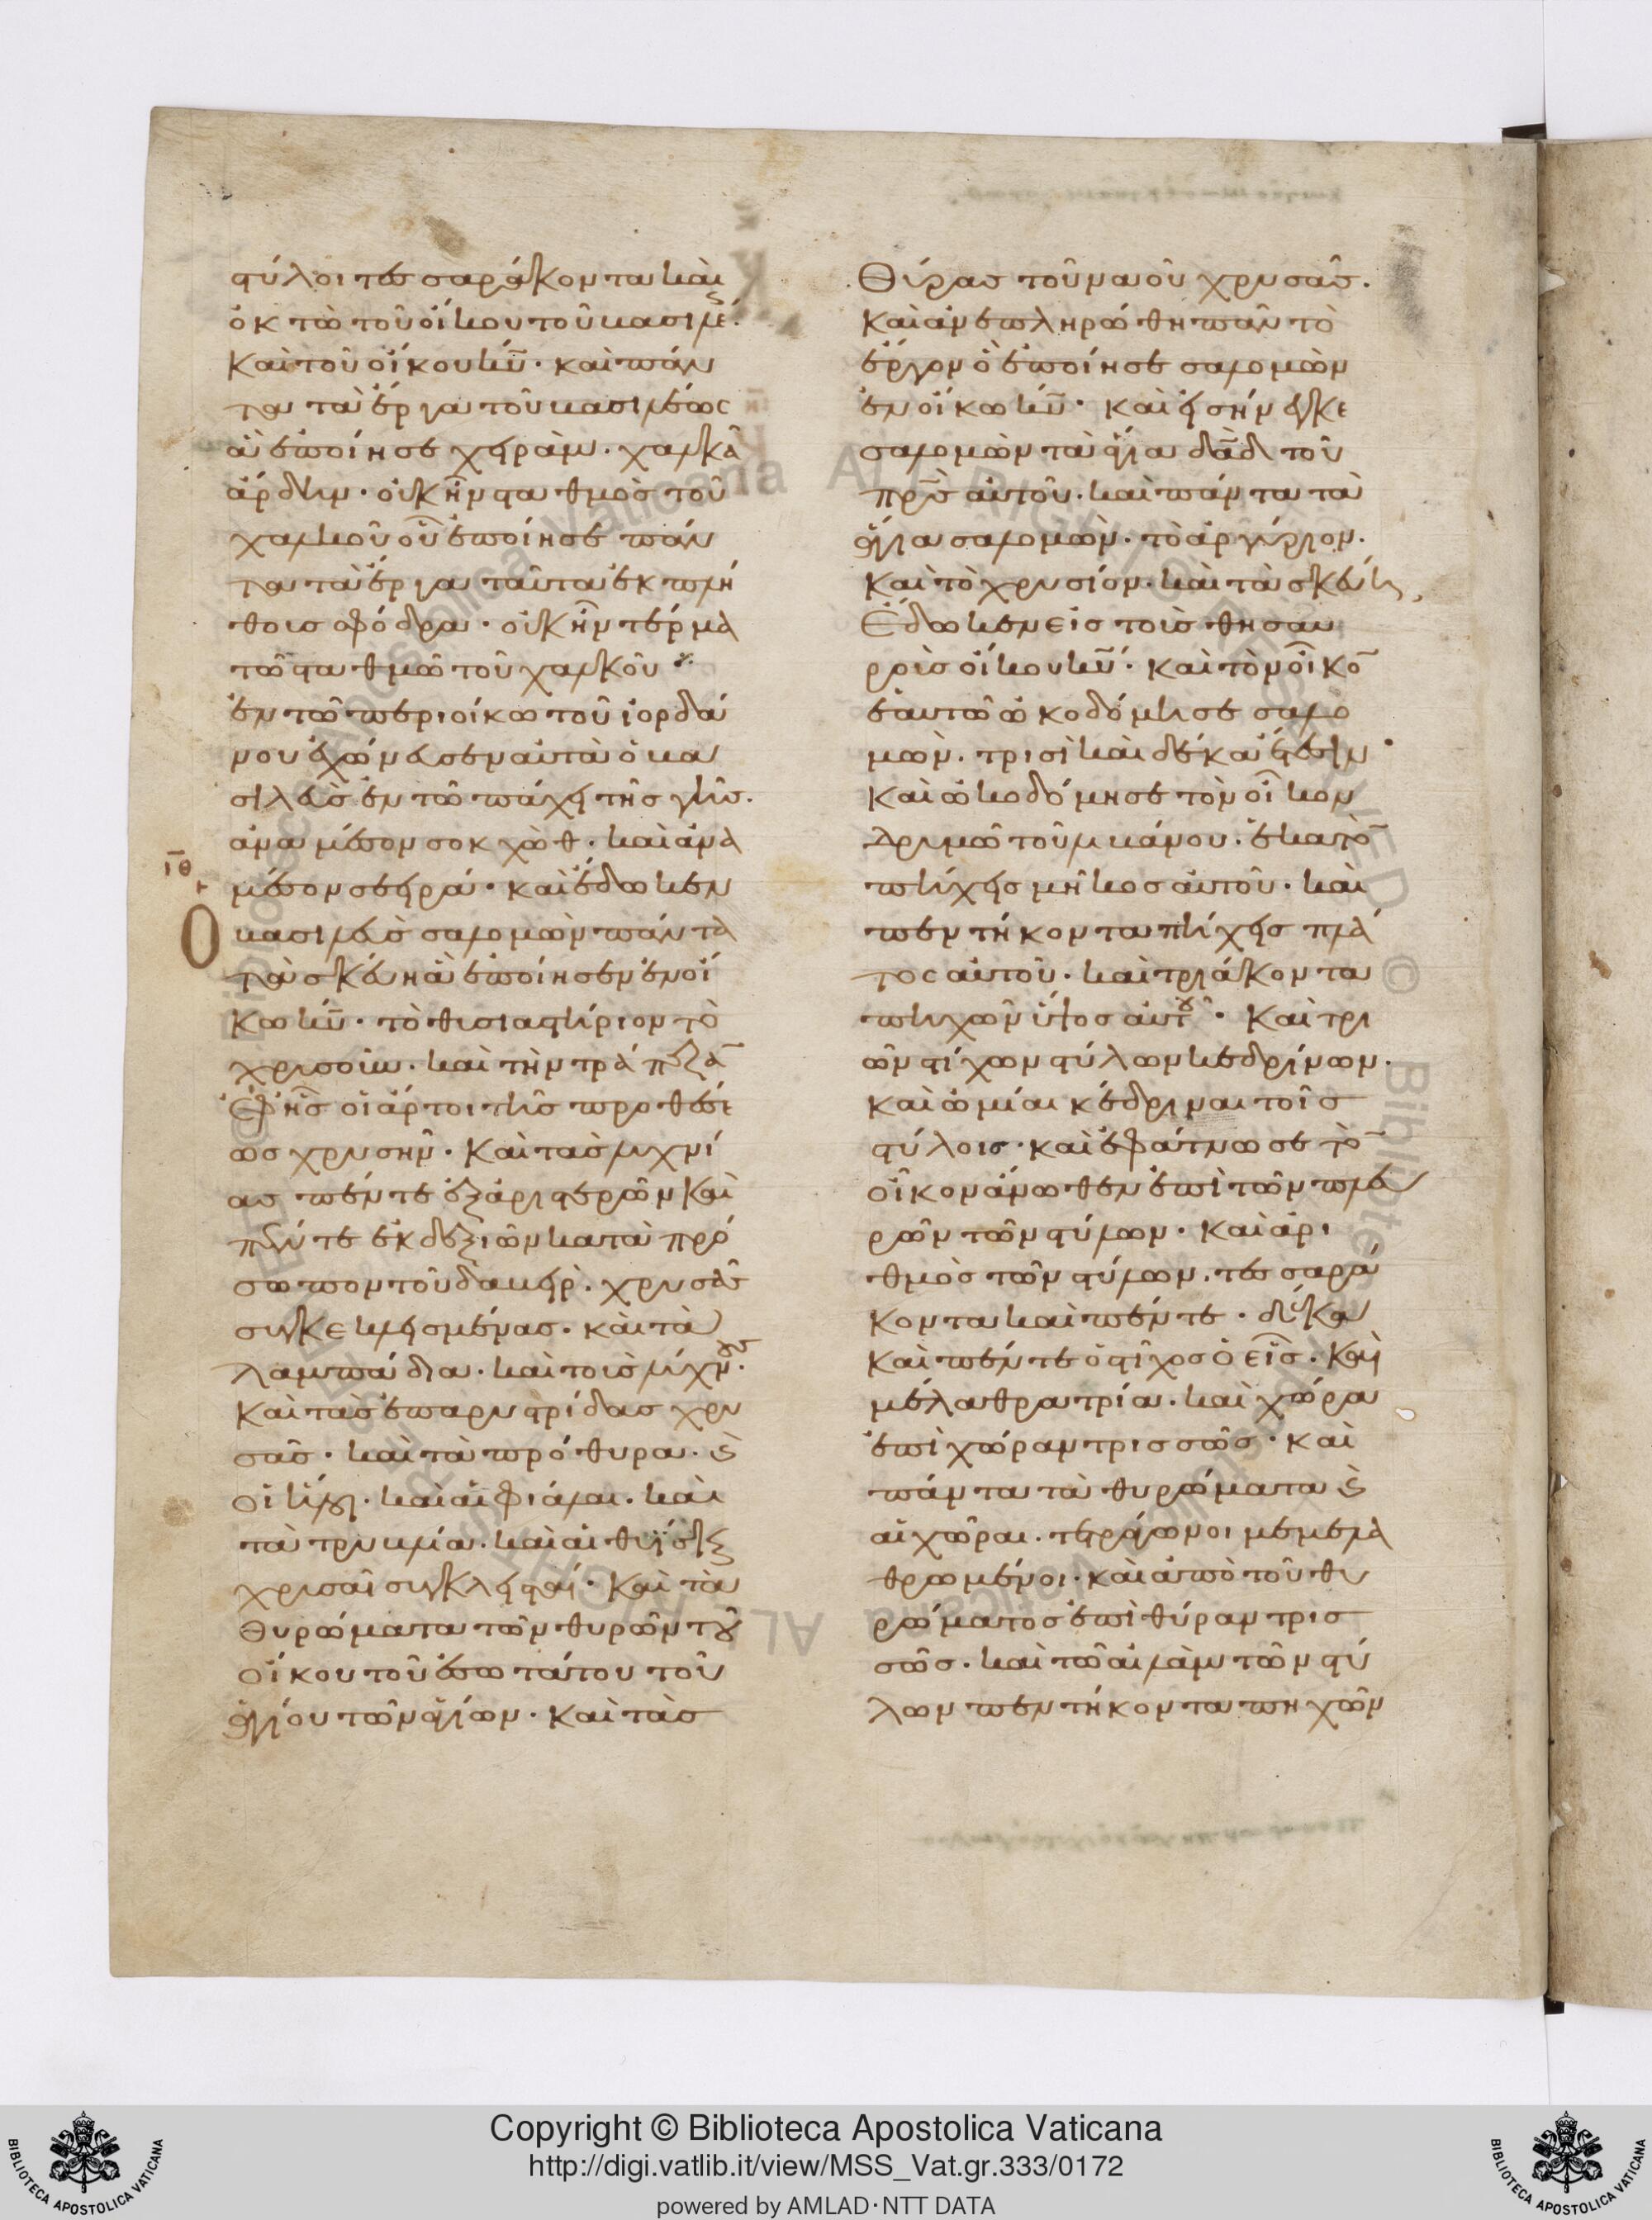 στύλοι τεσσαράκοντα καὶ
ὀκτὼ τοῦ οἴκου τοῦ βασιλέως.
Καὶ τοῦ οἴκου κ̅υ̅· καὶ πάν
τα τὰ ἔργα τοῦ βασιλέως
ἃ ἐποίησε χειράμ. χαλκᾶ
ἄρδην. οὐκ ἦν σταθμὸς τοῦ
χαλκοῦ οὗ ἐποίησε πάν
τα τὰ ἔργα ταῦτα ἐκ πλή
θους σφόδρα. οὐκ ἦν τέρμα
τῶ σταθμῶ τοῦ χαλκοῦ
ἐν τῶ περιοίκω τοῦ ἰορδά
νου ἐχώνευσεν αὐτὰ ὁ βα
σιλεὺς ἐν τῶ πάχει τῆς γῆς.
ἀνα μέσον σοκχὼθ. καὶ ἀνα
μέσον σειρά. καὶ ἔδωκεν
ι̅θ̅
Ο βασιλεὺς σαλομὼν πάντα
τὰ σκεύη ἃ ἐποίησεν ἐν οἴ
κω κ̅υ̅. τὸ θυσιαστήριον τὸ
χρυσοῦν. καὶ τὴν τράπεζα̅
ἐφ ῆς οἱ ἄρτοι τῆς προθέσε
ως χρυσῆν. Καὶ τὰς λυχνί
ας πέντε ἐξ ἀριστερῶν καὶ
πέντε ἐκ δεξιῶν κατὰ πρό
σωπον τοῦ δαβεὶρ. χρυσᾶς
συγκεκλεισμένας. καὶ τὰ
λαμπάδια. καὶ τοὺς λύχνους.
Καὶ τὰς ἐπαρυστρίδας χρυ
σᾶς. καὶ τὰ πρόθυρα. καὶ
οἱ ἧλοι. καὶ αἱ φιάλαι. καὶ
τὰ τρυβλία. καὶ αἱ θυΐσκαι
χρυσαῖ συγκλειστοί. Καὶ τὰ
θυρώματα τῶν θυρῶν τοῦ
οἴκου τοῦ ἐσωτάτου τοῦ
ἁγίου τῶν ἁγίων. Καὶ τὰς
Θύρας τοῦ ναοῦ χρυσᾶς.
Καὶ ἀνεπληρώθη πᾶν τὸ
ἔργον ὃ ἐποίησε σαλομὼν
ἐν οἴκω κ̅υ̅. καὶ εἰσήνεγκε
σαλομὼν τὰ ἅγια δα̅δ̅ τοῦ
π̅ρ̅ς̅ αὐτοῦ. καὶ πάντα τὰ
ἅγια σαλομὼν. τὸ ἀργύριον.
Καὶ τὸ χρυσίον. καὶ τὰ σκεύη,
Ἔδωκεν εἰς τοὺς θησαυ
ροὺς οἴκου κ̅υ̅. καὶ τὸν οἶκο̅
ἑαυτῶ ὠκοδόμησε σαλο
μὼν. τρισὶ καὶ δέκα ἔτεσιν.
Καὶ ὠκοδόμησε τὸν οἶκον
δρυμῶ τοῦ λιβάνου. ἑκατὸ̅
πήχεις μῆκος αὐτοῦ. καὶ
πεντήκοντα πήχεις πλά
τος αὐτοῦ. καὶ τριάκοντα
πηχῶν ὕψος αὐτοῦ. Καὶ τρι
ῶν στίχων στύλων κεδρίνων.
καὶ ὠμίαι κέδριναι τοῖς
στύλοις. καὶ ἐφάτνωσε τὸ̅
οἶκον ἄνωθεν ἐπὶ τῶν πλευ
ρῶν τῶν στύλων. Καὶ ἀρι
θμὸς τῶν στύλων. τεσσαρά
κοντα καὶ πέντε. δέκα
καὶ πέντε ὁ στίχος ὁ εἷς. Καὶ
μέλαθρα τρία. καὶ χώρα
ἐπὶ χώραν τρισσῶς. καὶ
πάντα τὰ θυρώματα καὶ
αἱ χῶραι. τετράγωνοι μεμελα
θρωμένοι. καὶ ἀπὸ τοῦ θυ
ρώματος ἐπὶ θύραν τρισ
σῶς. καὶ τῶ αἰλὰμ τῶν στύ
λων πεντήκοντα πηχῶν
Copyright © Biblioteca Apostolica Vaticana
http://digi.vatlib.it/view/MSS_Vat.gr.333/0172
powered by AMLAD·NTT DATA
BIBLIOTECA APOSTOLICA VATICANA
BIBLIOTECA APOSTOLICA VATICANA